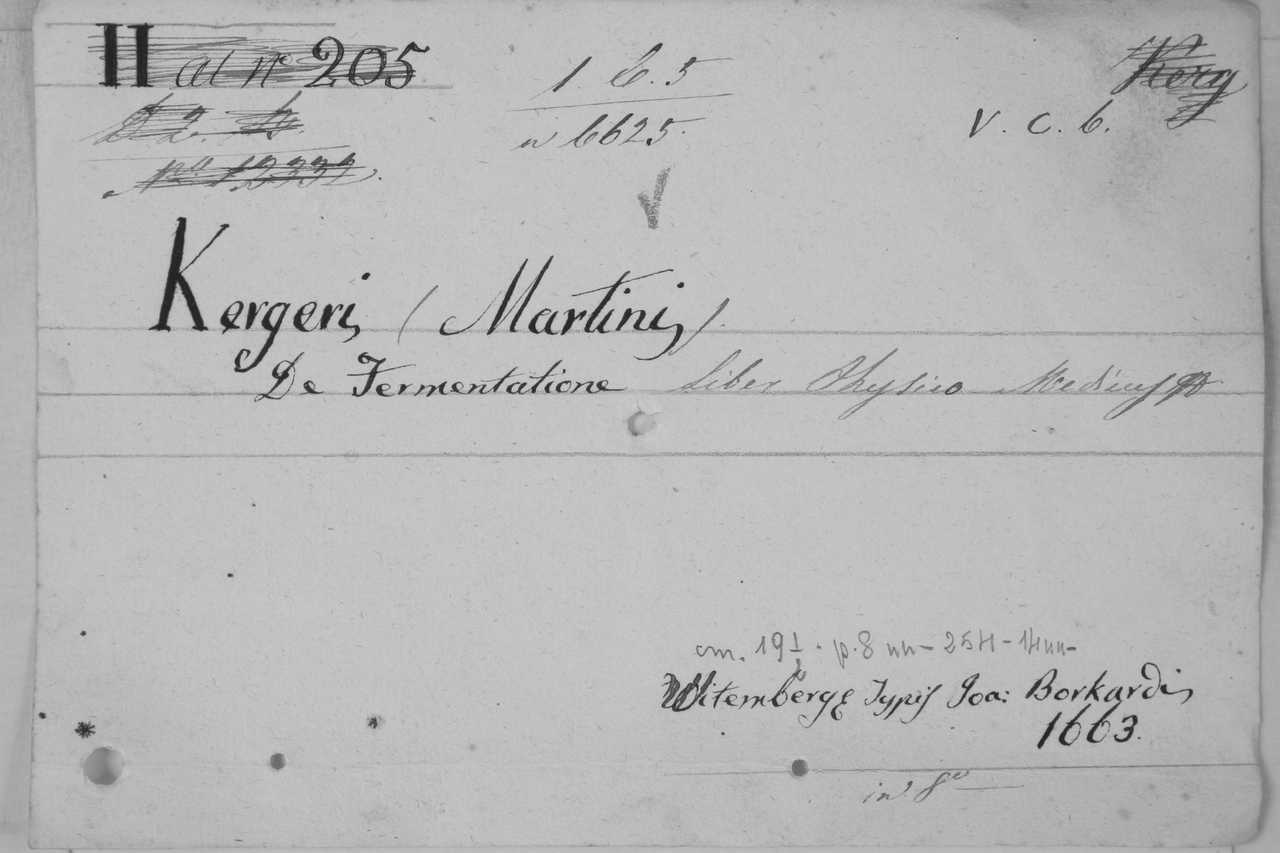 H al nº 205
1. C. 5
nº 6625.
Nº 12332.
V. C. 6.
Kerg
Kergeri, (Martini,)
De Fermentatione Liber Physico Medicus
cm. 19½. p. 8 nn - 254 - 14 nn -
Witembergę Typis Joa: Borkardi,
1663.
in 8º